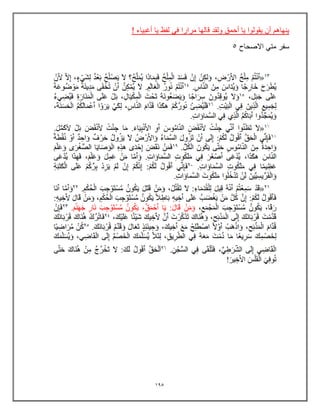 ينهاهم أن يقولوا يا أحمق ولقد قالها مرارا في لفظ يا أغبياء !
سفر متي الاصحاح ٥
١٣«أَنْتُمْ مِلْحُ الأَرْضِ، وَلكِنْ إِنْ فَسَدَ الْمِلْحُ فَبِمَاذَا يُمَلَّحُ؟ لاَ يَصْلُحُ بَعْدُ لِشَيْءٍ، إِلاَّ لأَنْ
يُطْرَحَ خَارِجًا وَيُدَاسَ مِنَ النَّاسِ. ١٤أَنْتُمْ نُورُ الْعَالَمِ. لاَ يُمْكِنُ أَنْ تُخْفَى مَدِينَةٌ مَوْضُوعَةٌ
عَلَى جَبَل، ١٥وَلاَ يُوقِدُونَ سِرَاجًا وَيَضَعُونَهُ تَحْتَ الْمِكْيَالِ، بَلْ عَلَى الْمَنَارَةِ فَيُضِيءُ
لِجَمِيعِ الَّذِينَ فِي الْبَيْتِ. ١٦فَلْيُضِئْ نُورُكُمْ هكَذَا قُدَّامَ النَّاسِ، لِكَيْ يَرَوْا أَعْمَالَكُمُ الْحَسَنَةَ،
وَيُمَجِّدُوا أَبَاكُمُ الَّذِي فِي السَّمَاوَاتِ.
١٧«لاَ تَظُنُّوا أَنِّي جِئْتُ لأَنْقُضَ النَّامُوسَ أَوِ الأَنْبِيَاءَ. مَا جِئْتُ لأَنْقُضَ بَلْ لأُكَمِّلَ.
١٨فَإِنِّي الْحَقَّ أَقُولُ لَكُمْ: إِلَى أَنْ تَزُولَ السَّمَاءُ وَالأَرْضُ لاَ يَزُولُ حَرْفٌ وَاحِدٌ أَوْ نُقْطَةٌ
وَاحِدَةٌ مِنَ النَّامُوسِ حَتَّى يَكُونَ الْكُلُّ. ١٩فَمَنْ نَقَضَ إِحْدَى هذِهِ الْوَصَايَا الصُّغْرَى وَعَلَّمَ
النَّاسَ هكَذَا، يُدْعَى أَصْغَرَ فِي مَلَكُوتِ السَّمَاوَاتِ. وَأَمَّا مَنْ عَمِلَ وَعَلَّمَ، فَهذَا يُدْعَى
عَظِيمًا فِي مَلَكُوتِ السَّمَاوَاتِ. ٢٠فَإِنِّي أَقُولُ لَكُمْ: إِنَّكُمْ إِنْ لَمْ يَزِدْ بِرُّكُمْ عَلَى الْكَتَبَةِ
وَالْفَرِّيسِيِّينَ لَنْ تَدْخُلُوا مَلَكُوتَ السَّماوَاتِ.
٢١«قَدْ سَمِعْتُمْ أَنَّهُ قِيلَ لِلْقُدَمَاءِ: لاَ تَقْتُلْ، وَمَنْ قَتَلَ يَكُونُ مُسْتَوْجِبَ الْحُكْمِ. ٢٢وَأَمَّا أَنَا
فَأَقُولُ لَكُمْ: إِنَّ كُلَّ مَنْ يَغْضَبُ عَلَى أَخِيهِ بَاطِلاً يَكُونُ مُسْتَوْجِبَ الْحُكْمِ، وَمَنْ قَالَ لأَخِيهِ:
رَقَا، يَكُونُ مُسْتَوْجِبَ الْمَجْمَعِ، وَمَنْ قَالَ: يَا أَحْمَقُ، يَكُونُ مُسْتَوْجِبَ نَارِ جَهَنَّمَ. ٢٣فَإِنْ
قَدَّمْتَ قُرْبَانَكَ إِلَى الْمَذْبَحِ، وَهُنَاكَ تَذَكَّرْتَ أَنَّ لأَخِيكَ شَيْئًا عَلَيْكَ، ٢٤فَاتْرُكْ هُنَاكَ قُرْبَانَكَ
قُدَّامَ الْمَذْبَحِ، وَاذْهَبْ أَوَّلاً اصْطَلِحْ مَعَ أَخِيكَ، وَحِينَئِذٍ تَعَالَ وَقَدِّمْ قُرْبَانَكَ. ٢٥كُنْ مُرَاضِيًا
لِخَصْمِكَ سَرِيعًا مَا دُمْتَ مَعَهُ فِي الطَّرِيقِ، لِئَلاَّ يُسَلِّمَكَ الْخَصْمُ إِلَى الْقَاضِي، وَيُسَلِّمَكَ
الْقَاضِي إِلَى الشُّرَطِيِّ، فَتُلْقَى فِي السِّجْنِ. ٢٦اَلْحَقَّ أَقُولُ لَكَ: لاَ تَخْرُجُ مِنْ هُنَاكَ حَتَّى
تُوفِيَ الْفَلْسَ الأَخِيرَ!
١٩٨